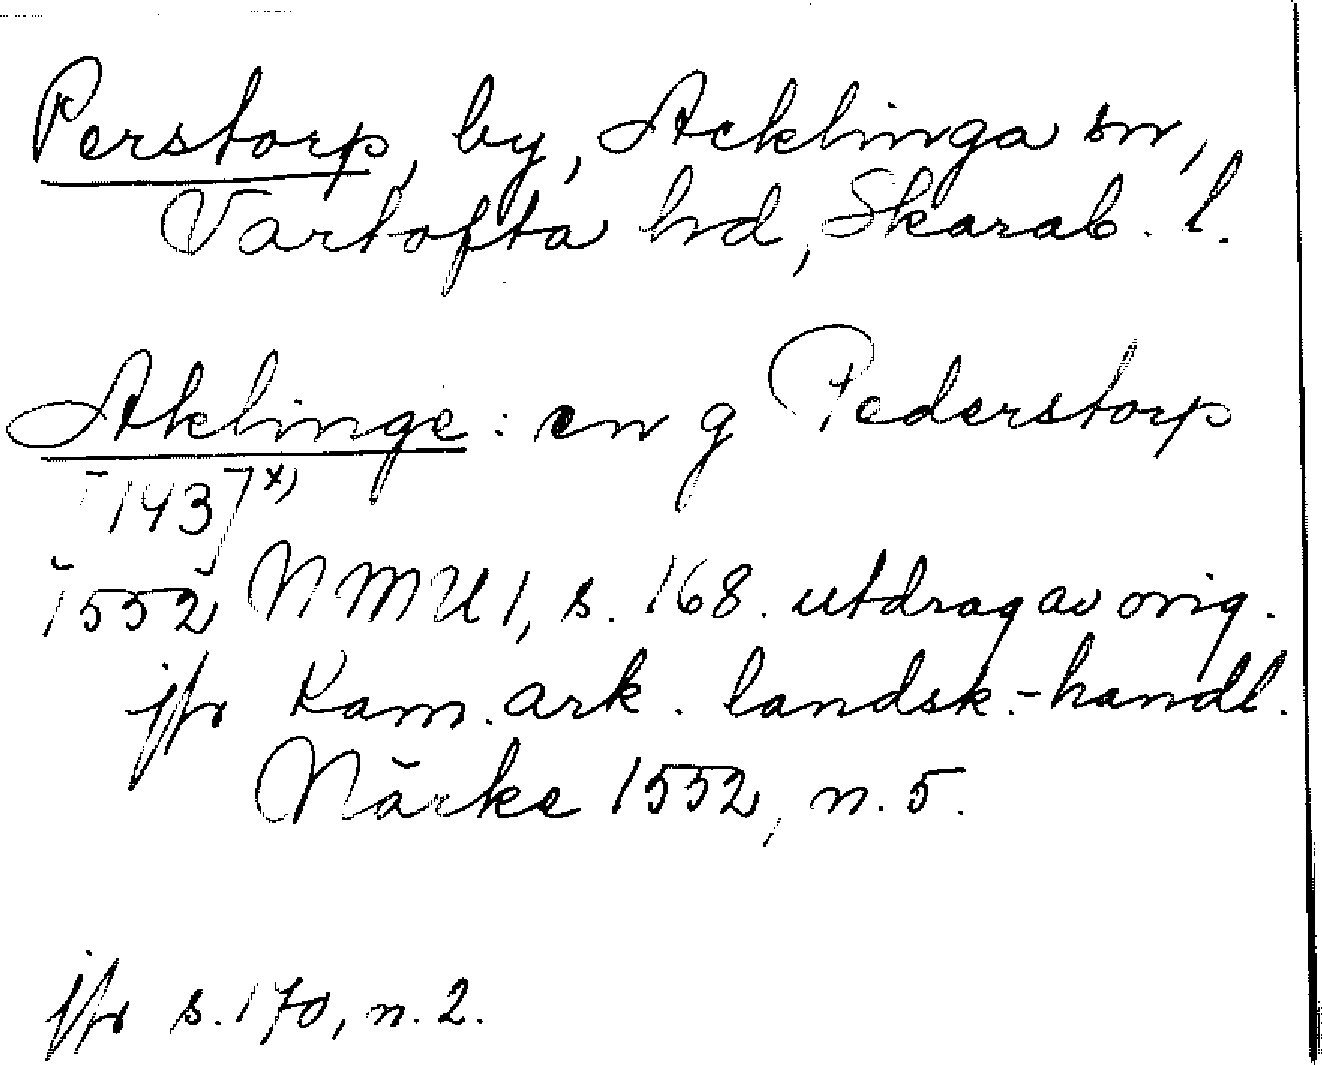 Perstorp, by, Acklinga sn,
Vartofta hd, Skarab. l.
Aklinge: en g Pederstorp
[143]x)
1552 NMU 1, s. 168. utdrag av orig.
jfr Kam. ark. landsk.-handl.
Närke 1552, n. 5.
jfr s. 170, n. 2.